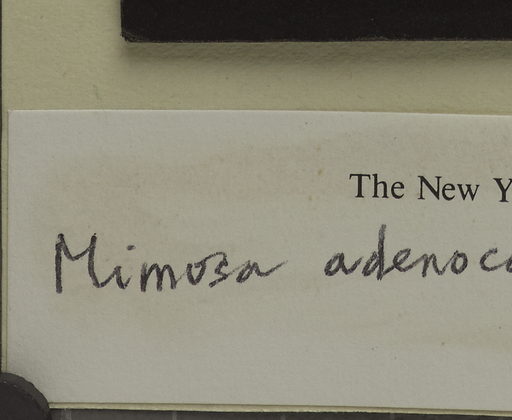 The New Y
Mimosa adenoca